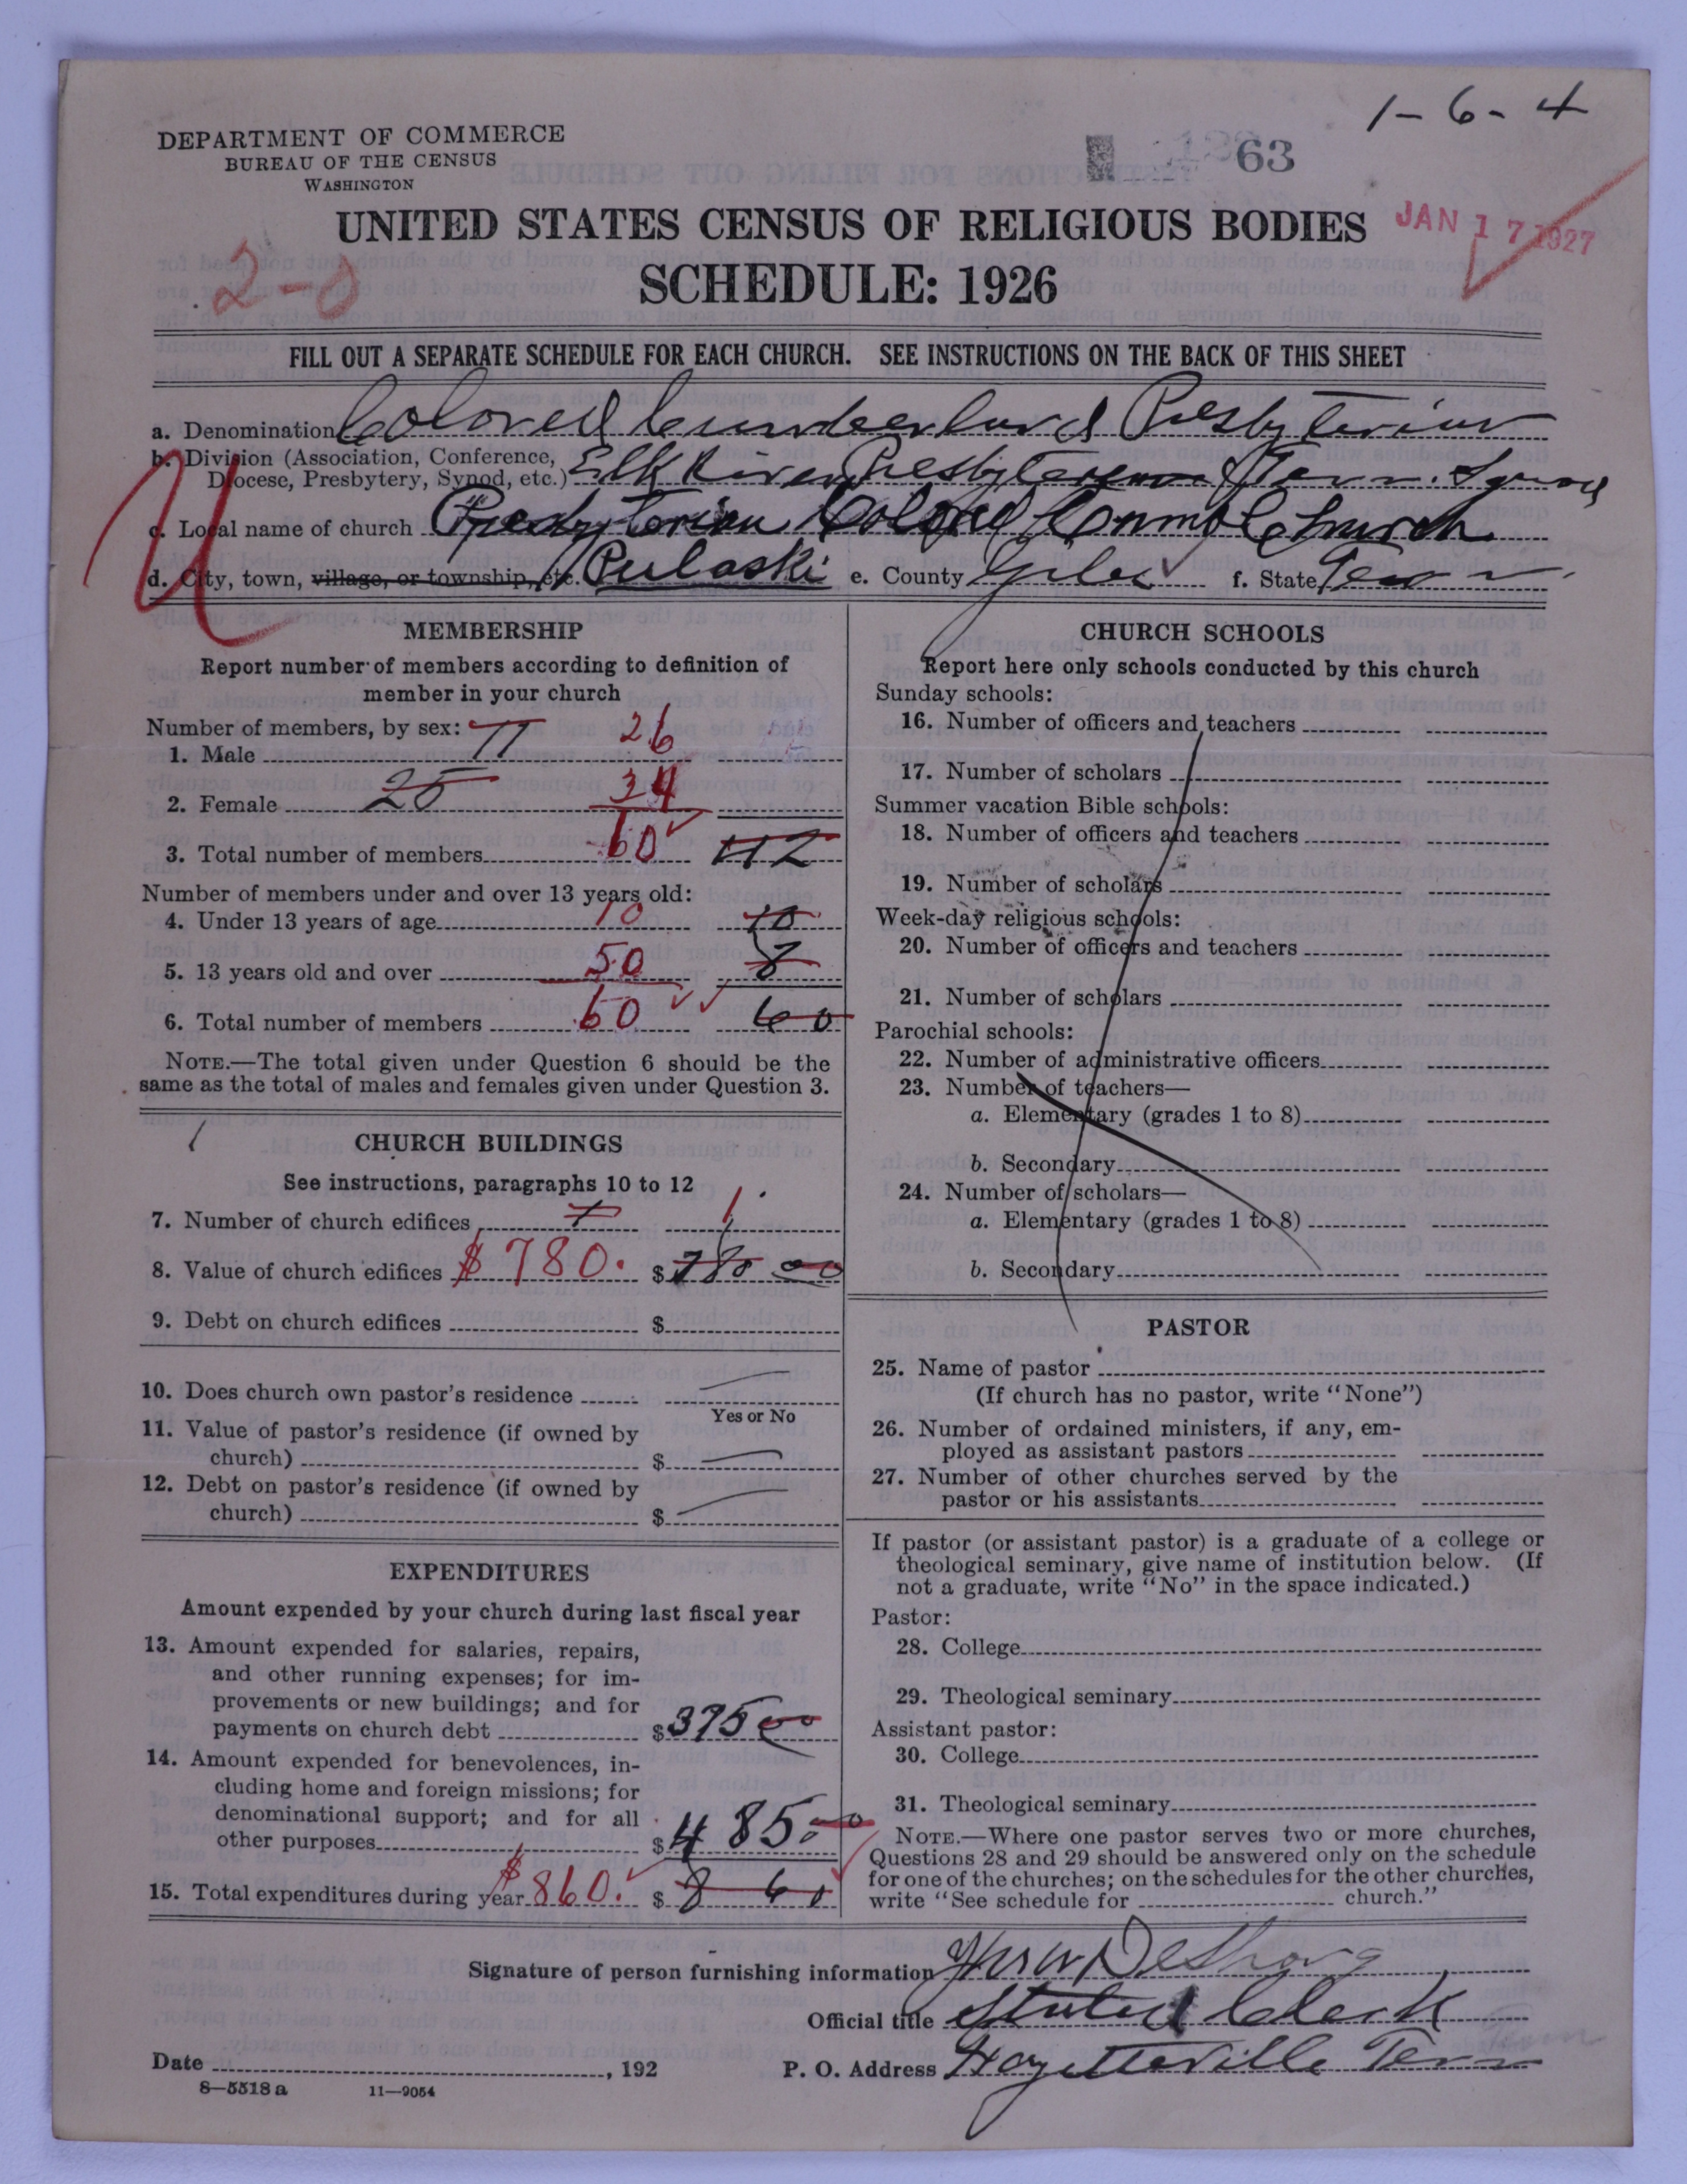 1-6-4
DEPARTMENT OF COMMERCE
BUREAU OF THE CENSUS
WASHINGTON
63
UNITED STATES CENSUS OF RELIGIOUS BODIES
JAN 17 1927
SCHEDULE: 1926
FILL OUT A SEPARATE SCHEDULE FOR EACH CHURCH. SEE INSTRUCTIONS ON THE BACK OF THIS SHEET
a. Denomination Colored Cumberland Presbyterian
b. Division (Association, Conference, Diocese, Presbytery, Synod, etc.) Elk River Presbytery Tenn. Synod
c. Local name of church Presbyterian Colored Church
d. City, town, village, or township, etc. Pulaski e. County Giles f. State Tenn
MEMBERSHIP
Report number of members according to definition of
member in your church
Number of members, by sex:
1. Male 17 26
2. Female 25 34
3. Total number of members 60 42
Number of members under and over 13 years old:
4. Under 13 years of age 10 10
5. 13 years old and over 50 8
6. Total number of members 60 60
NOTE.—The total given under Question 6 should be the
same as the total of males and females given under Question 3.
CHURCH BUILDINGS
See instructions, paragraphs 10 to 12
7. Number of church edifices 1 1
8. Value of church edifices $780. $780 00
9. Debt on church edifices $
10. Does church own pastor's residence
Yes or No
11. Value of pastor's residence (if owned by
church) $
12. Debt on pastor's residence (if owned by
church) $
EXPENDITURES
Amount expended by your church during last fiscal year
13. Amount expended for salaries, repairs,
and other running expenses; for im-
provements or new buildings; and for
payments on church debt $375 00
14. Amount expended for benevolences, in-
cluding home and foreign missions; for
denominational support; and for all
other purposes $485.00
15. Total expenditures during year $860. $860
CHURCH SCHOOLS
Report here only schools conducted by this church
Sunday schools:
16. Number of officers and teachers
17. Number of scholars
Summer vacation Bible schools:
18. Number of officers and teachers
19. Number of scholars
Week-day religious schools:
20. Number of officers and teachers
21. Number of scholars
Parochial schools:
22. Number of administrative officers
23. Number of teachers—
a. Elementary (grades 1 to 8)
b. Secondary
24. Number of scholars—
a. Elementary (grades 1 to 8)
b. Secondary
PASTOR
25. Name of pastor
(If church has no pastor, write "None")
26. Number of ordained ministers, if any, em-
ployed as assistant pastors
27. Number of other churches served by the
pastor or his assistants
If pastor (or assistant pastor) is a graduate of a college or
theological seminary, give name of institution below. (If
not a graduate, write "No" in the space indicated.)
Pastor:
28. College
29. Theological seminary
Assistant pastor:
30. College
31. Theological seminary
NOTE.—Where one pastor serves two or more churches,
Questions 28 and 29 should be answered only on the schedule
for one of the churches; on the schedules for the other churches,
write "See schedule for church."
Signature of person furnishing information
Official title Stated Clerk
Date , 192 P. O. Address Fayetteville Tenn
8—5518 a 11—9054